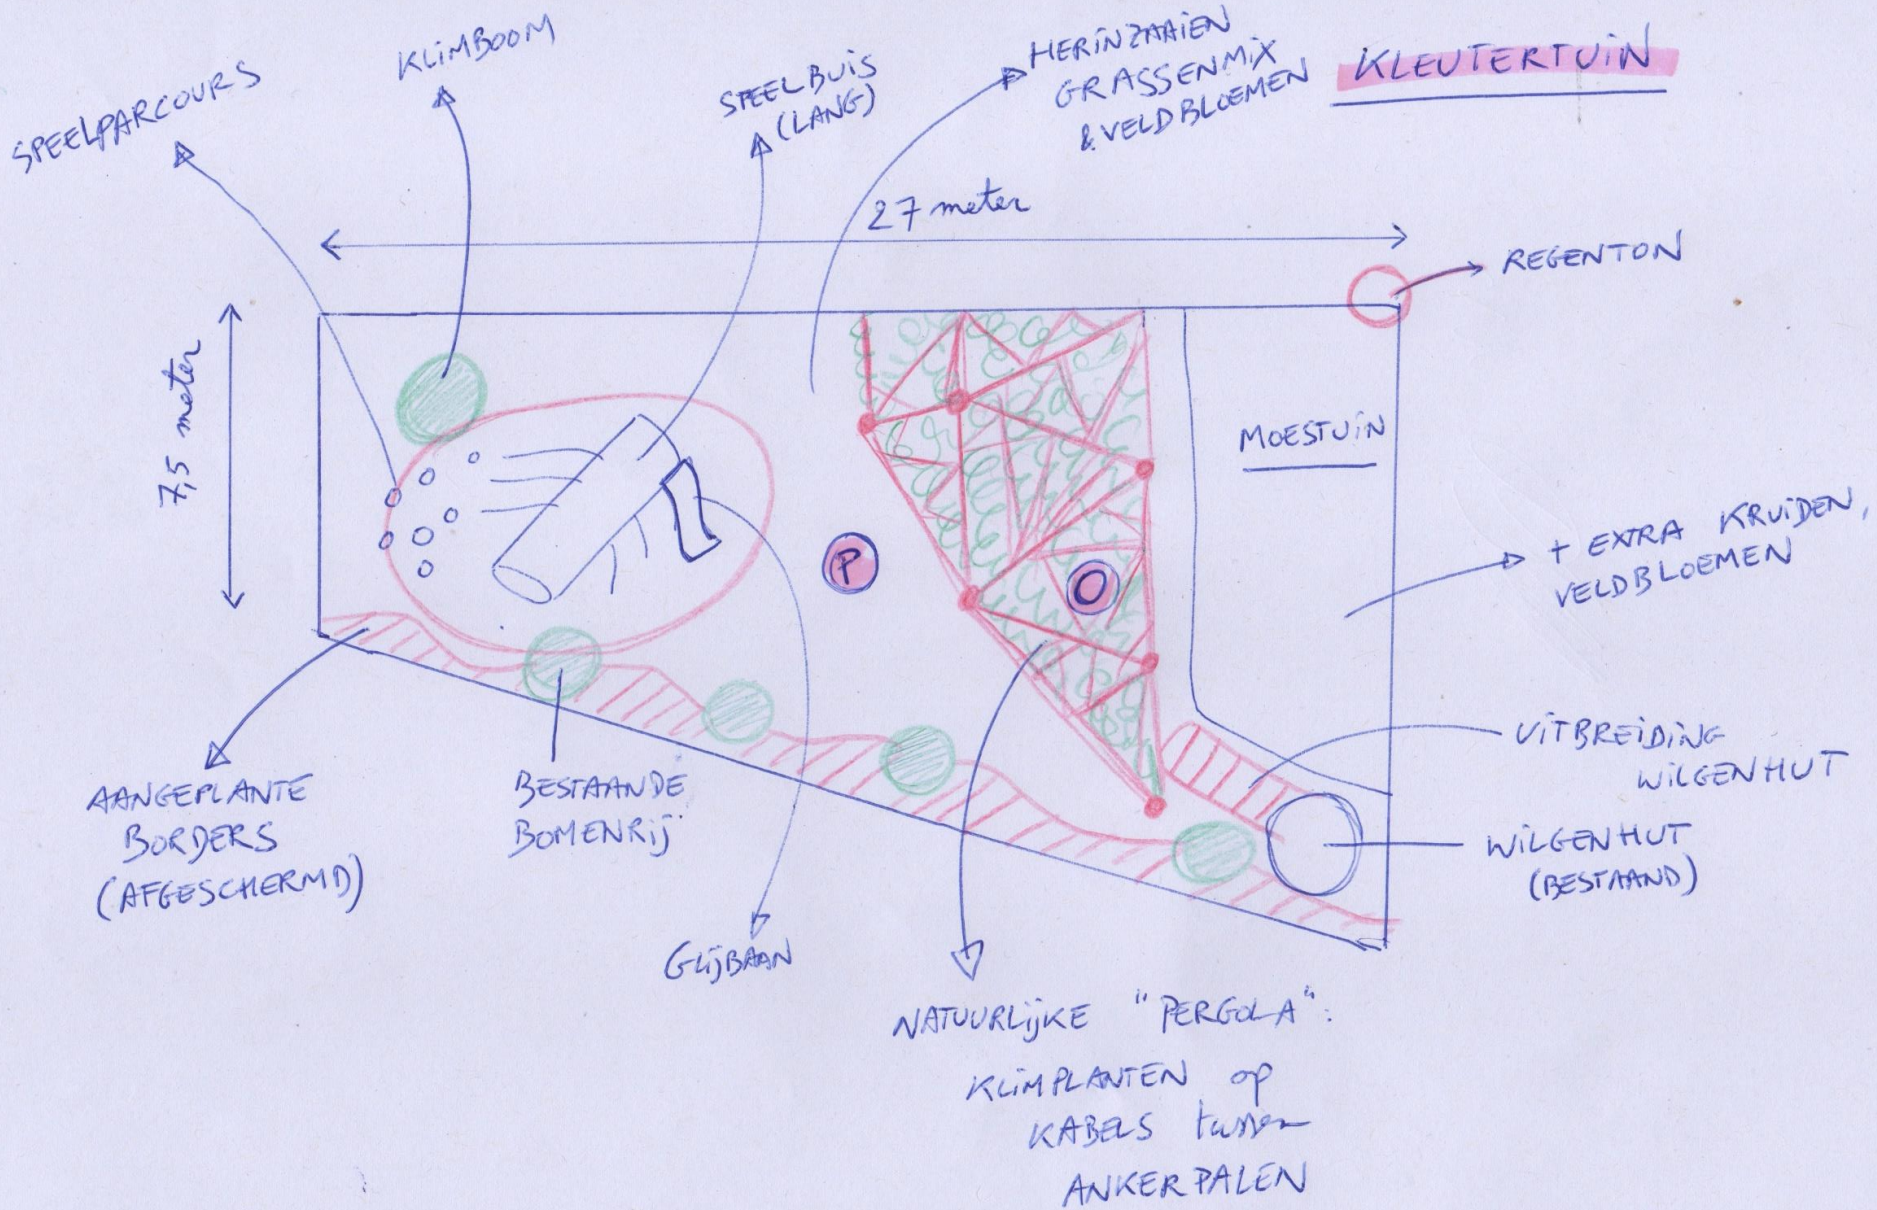 KLEUTERTUIN
SPEELPARCOURS
KLIMBOOM
SPEELBUIS
(LANG)
HERINZAAIEN
GRASSENMIX
& VELDBLOEMEN
27 meter
REGENTON
7,5 meter
MOESTUIN
+ EXTRA KRUIDEN,
VELDBLOEMEN
P
O
UITBREIDING
WILGENHUT
WILGENHUT
(BESTAAND)
AANGEPLANTE
BORDERS
(AFGESCHERMD)
BESTAANDE
BOMENRIJ
GLIJBAAN
NATUURLIJKE "PERGOLA":
KLIMPLANTEN op
KABELS tussen
ANKERPALEN